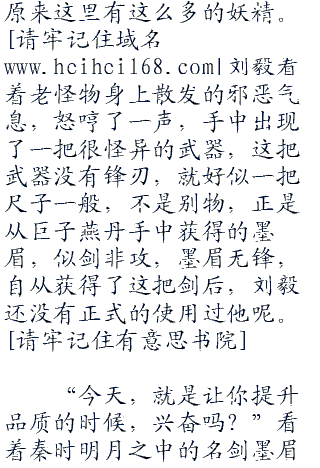 原来这里有这么多的妖精。
[请牢记住域名
www.hcihcil68.com|刘毅看
着老怪物身上散发的邪恶气
息，怒哼了一声，手中出现
了一把很怪异的武器，这把
武器没有锋刃，就好似一把
尺子一般，不是别物，正是
从巨子燕丹手中获得的墨
眉，似剑非攻，墨眉无锋，
自从获得了这把剑后，刘毅
还没有正式的使用过他呢。
[请牢记住有意思书院]
“今天，就是让你提升
品质的时候，兴奋吗？”看
着秦时明月之中的名剑墨眉